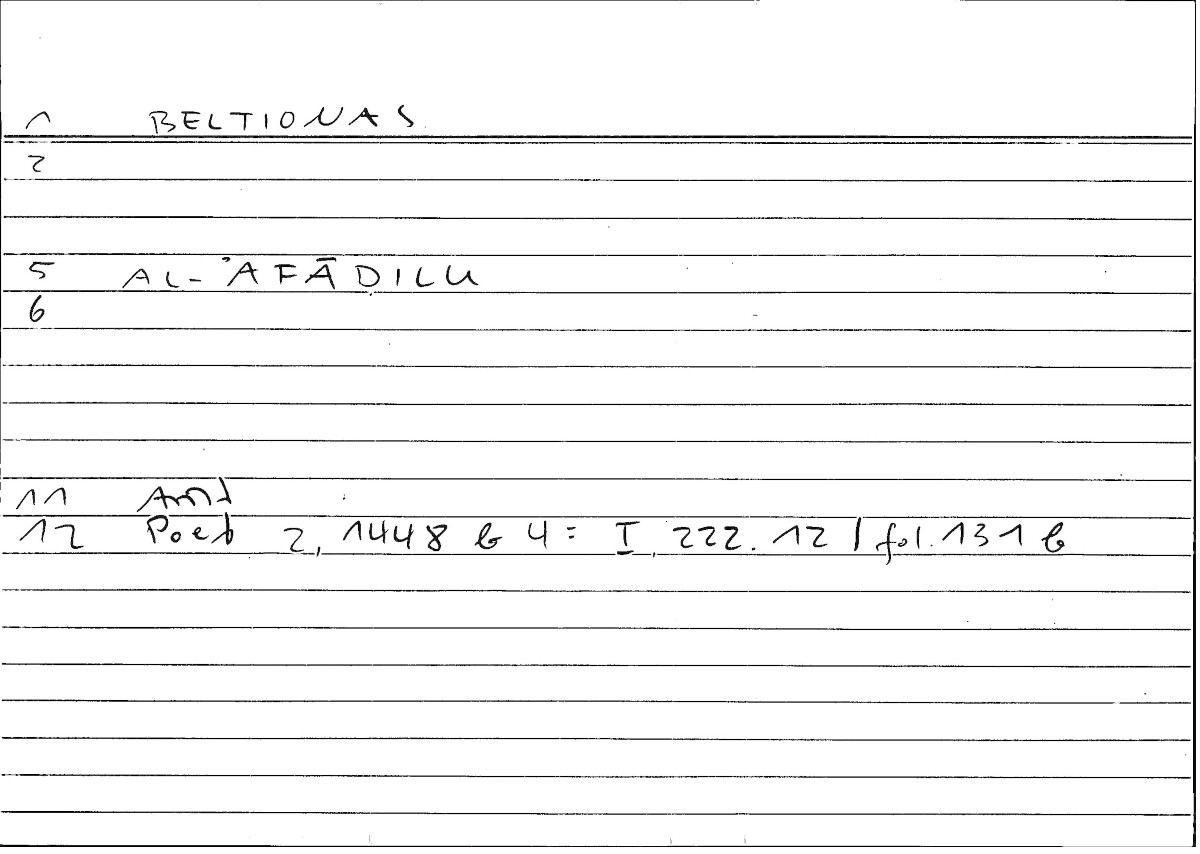 1 BELTIONAS
2
5 AL-ʾAFĀḌILU
6
11
12 Poet 2, 1448 b 4 = I, 222.12 / fol. 131 b